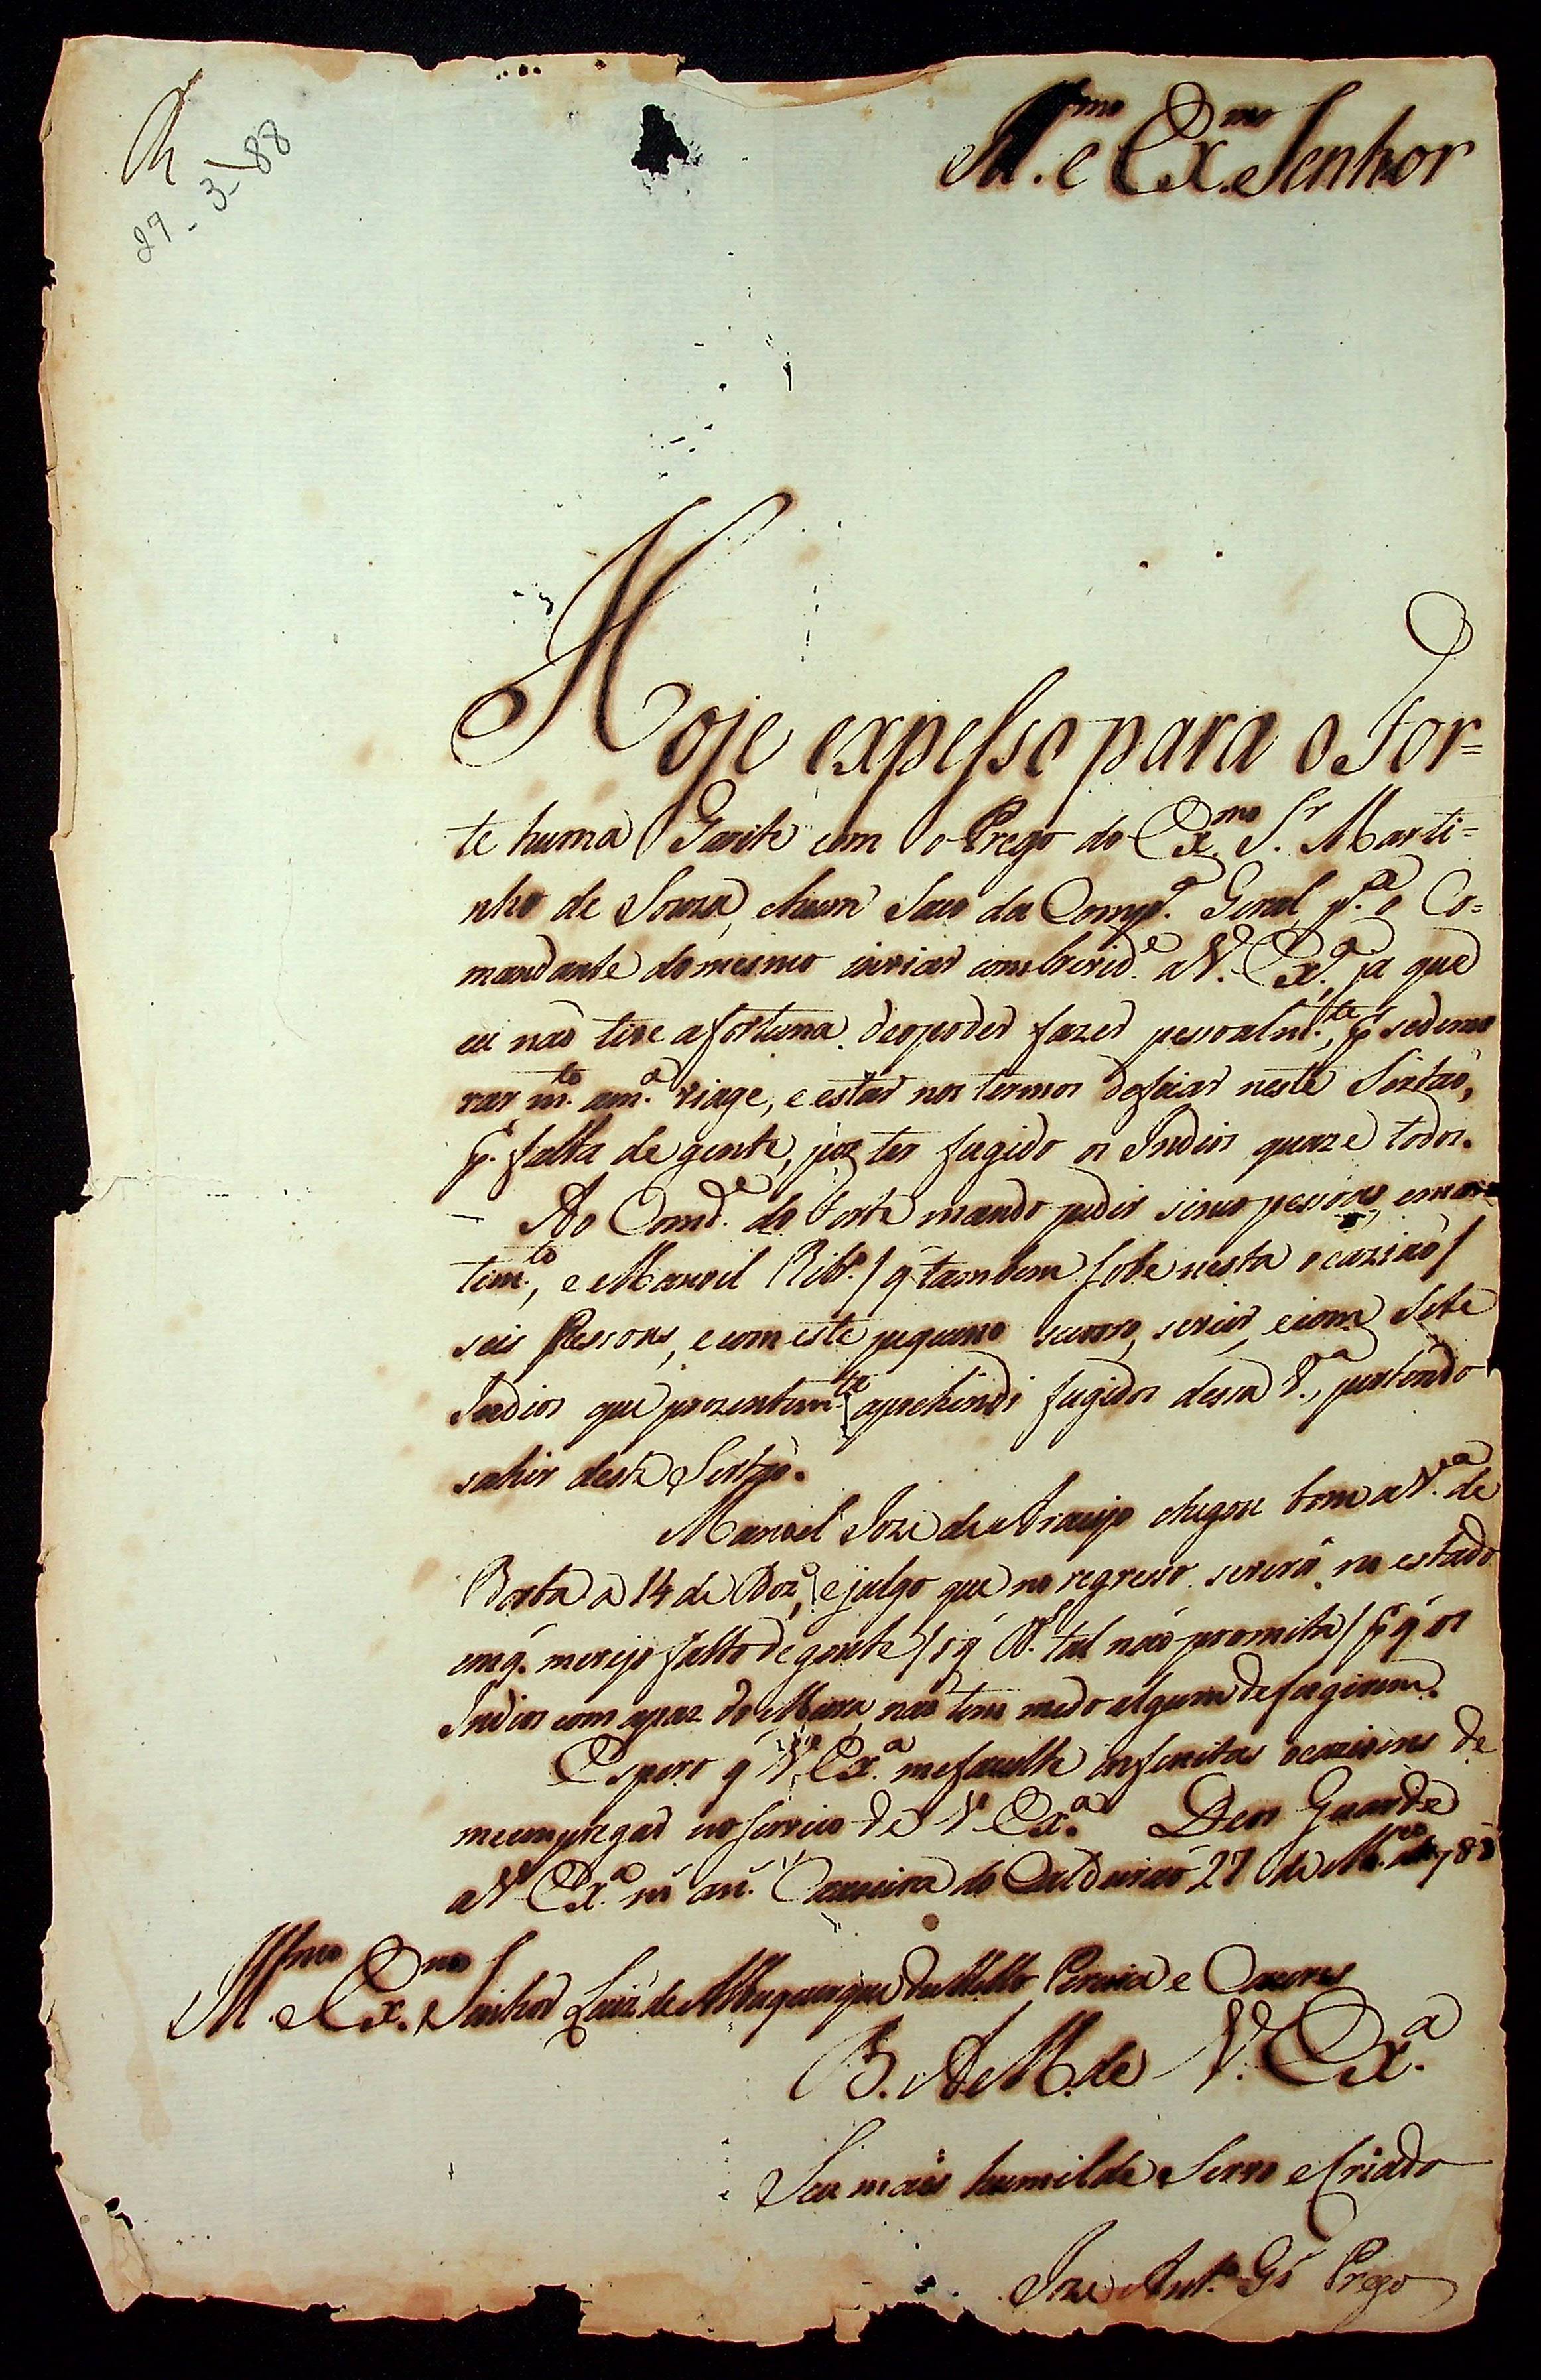 27-3-88
Ill.mo e Ex.mo Senhor
Hoje expesso para o For=
te huma Garite com o Prego do Ex.mo S.r Marti=
nho de Souza, e hum Saco da Comp.a Geral p.a o Co=
mandante do mesmo inviar com brevid.e a V. Ex.a, ja que
eu naõ tive a fortuna de o poder fazer pessoalm.te, p.r se demo
rar m.to a m.a viage, e estar nos termos de ficar neste Sertaõ,
p.r falta de gente, por ter fugido os Indios quaze todos.
Ao Com.de do Forte mando pedir sinco pessoas
tem.to, e Manoel Rib.o / q̃ tambem sobe nesta ocaziaõ /
seis Pessoas, e com este pequeno socorro, e com Sete
Indios que prezentem.te aprehendi fugidos dessa V.a, pertendo
sahir deste Sertaõ.
Manoel Joze de Araujo chegou bom a V.a de
Borba a 14 de Dez.o, e julgo que no regresso se verá no estado
em q̃ me vejo falto de gente / o q̃ D.s tal naõ promita / p.r q̃ os
Indios com a paz do Mura, naõ tem medo algum de fugirem.
Espero q̃ V. Ex.a me faculte infinitas ocazioens de
me empregar no servico de V. Ex.a Deos Guarde
a V. Ex.a m.s an.s Caxoeira do Caldeiraõ 27 de M.ço de 788
Ill.mo e Ex.mo Senhor Luiz de Albuquerque de Mello Pereira e Caceres
B. A M. de V. Ex.a
Seu mais humilde Servo e Criado
Joze Ant.o Gĩ Prego